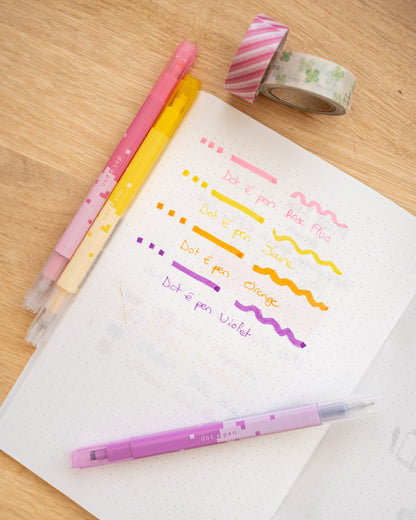 Dot é pen Rose Fluo
Dot é pen Jaune
Dot é pen Orange
Dot é pen Violet
dot é pen